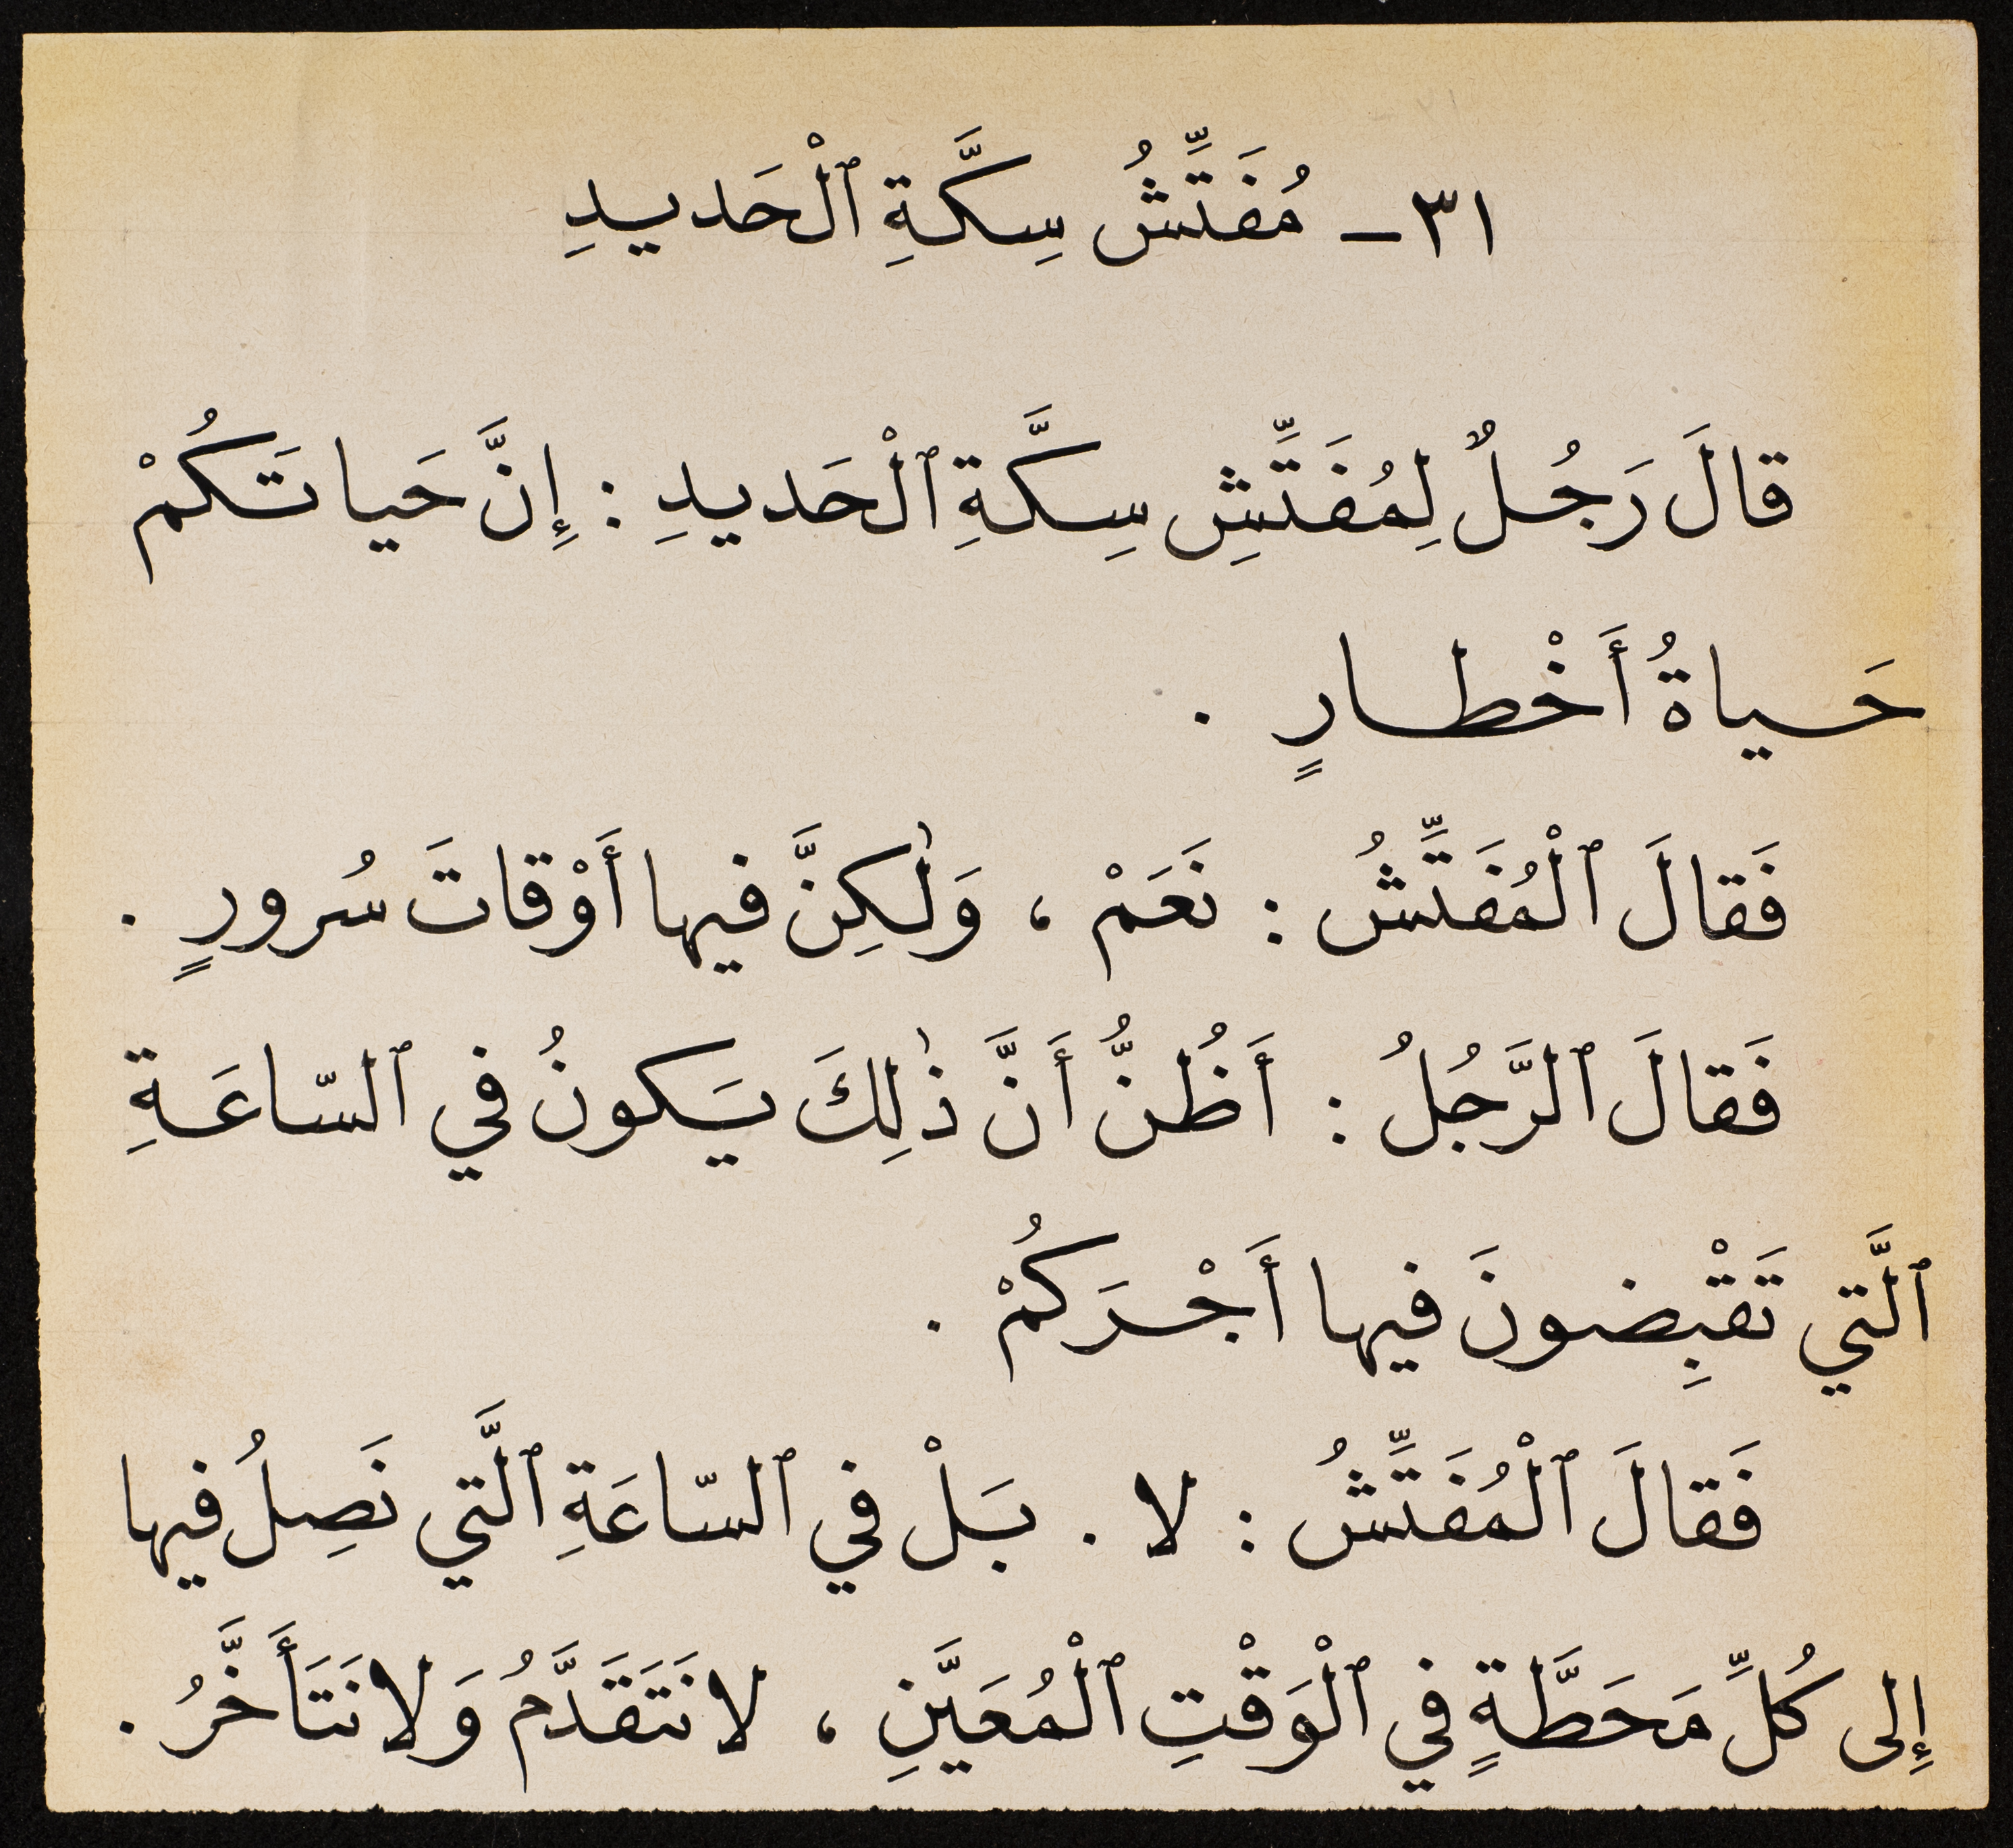 ٣١ – مُفَتِّشُ سِكَّةِ ٱلْحَديدِ
قالَ رَجُلٌ لِمُفَتِّشِ سِكَّةِ ٱلْحَديدِ : إِنَّ حَياتَكُمْ
حَياةُ أَخْطارٍ .
فَقالَ ٱلْمُفَتِّشُ : نَعَمْ ، وَلٰكِنَّ فيها أَوْقاتَ سُرورٍ .
فَقالَ ٱلرَّجُلُ : أَظُنُّ أَنَّ ذٰلِكَ يَكونُ في ٱلسّاعَةِ
ٱلَّتي تَقْبِضونَ فيها أَجْرَكُمْ .
فَقالَ ٱلْمُفَتِّشُ : لا . بَلْ في ٱلسّاعَةِ ٱلَّتي نَصِلُ فيها
إِلى كُلِّ مَحَطَّةٍ في ٱلْوَقْتِ ٱلْمُعَيَّنِ ، لا نَتَقَدَّمُ وَلا نَتَأَخَّرُ .